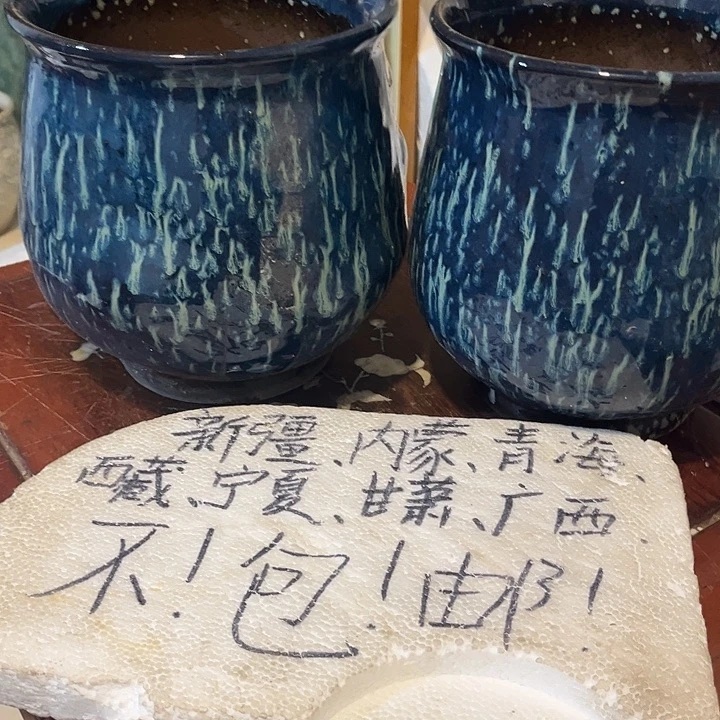 新疆、内蒙、青海、
西藏、宁夏、甘萧、广西
不！包！邮！